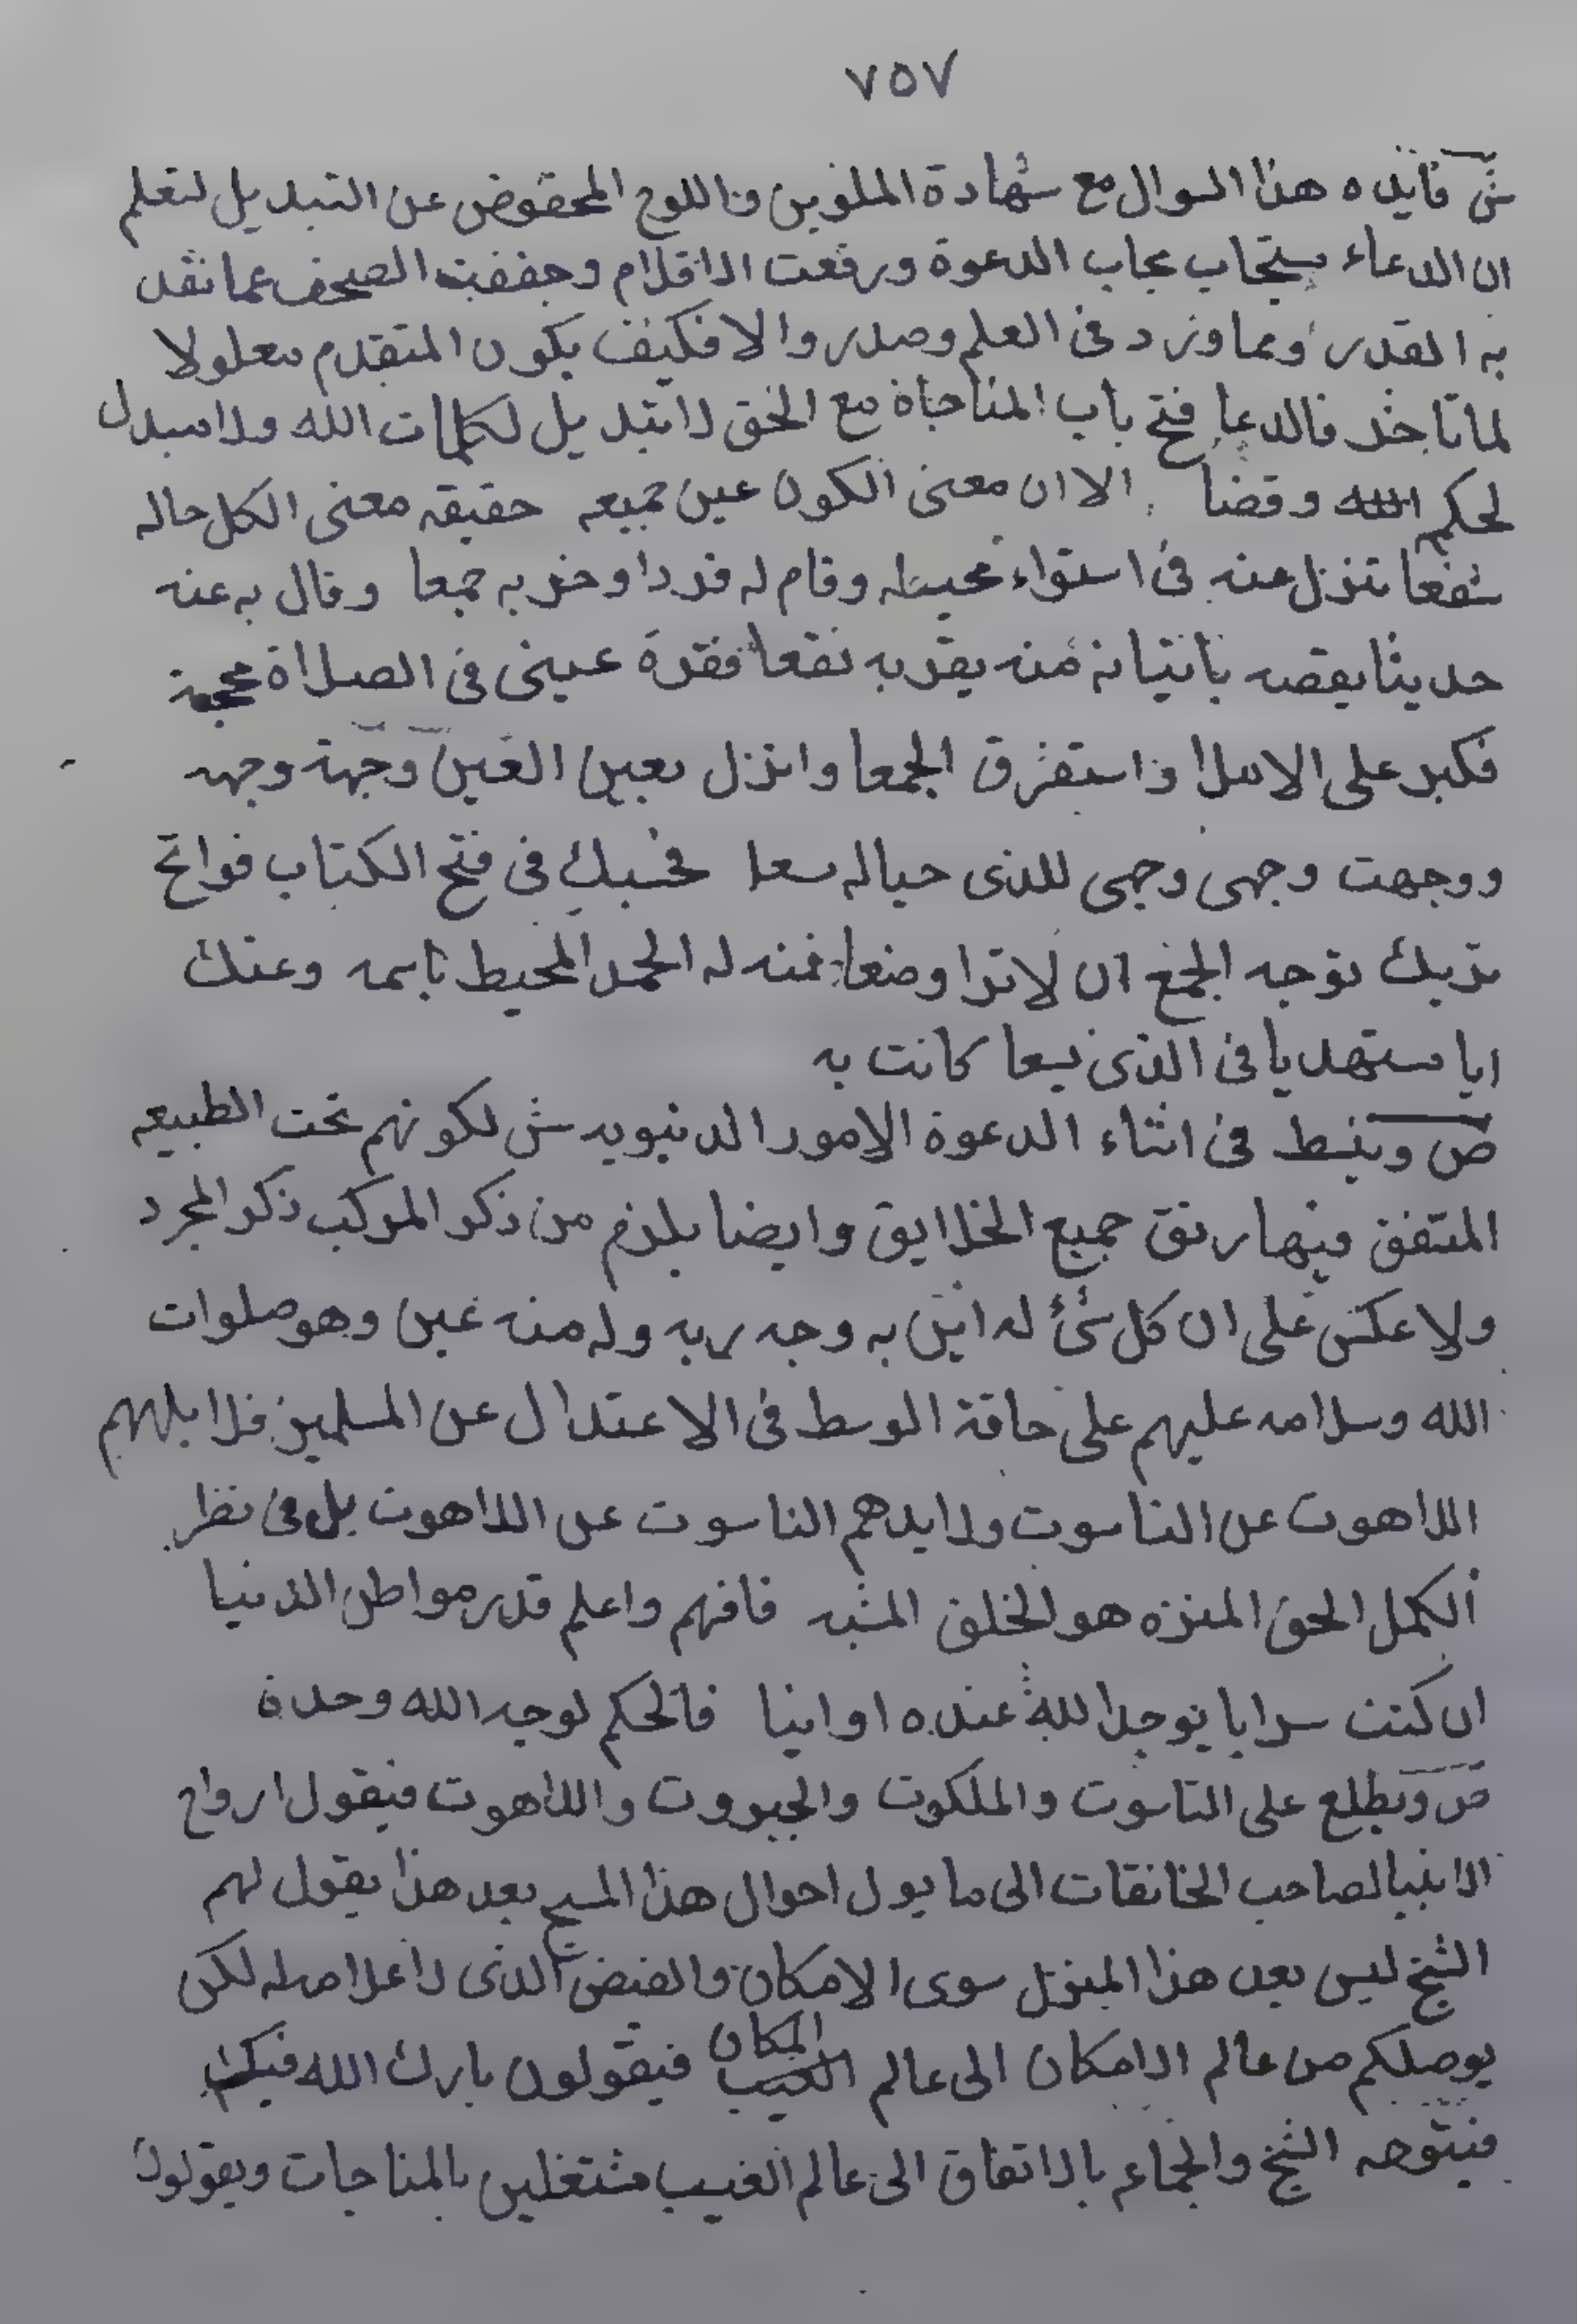 ٧٥٧
ش فايده هذا السوال مع شهادة الملوين واللوح المحفوض عن التبديل لتعلم
ان الدعاء يستجاب مجاب الدعوة ورفعت الاقلام وجففت الصحف عما نفد
به القدر وعما ورد فى العلم وصدر والا فكيف يكون المتقدم معلولا
لما تاخر فالدعا فتح باب المناجاة مع الحق لا تبديل لكلمات الله ولا مبدل
لحكم الله وقضا الا ان معنى الكون عين جميعه حقيقه معنى الكل حاله
شفعا تنزل عنه فى استواء محيطه وقام له فردا وخر به جمعا وقال به عنه
حديثا يقصه باتيانه منه يقر به نفعا فقرة عينى فى الصلاة محبة
فكبر على الاملا واستفرق الجمعا وانزل بعين العين وجهة وجهه
ووجهت وجهى وجهى للذى حياله سعا فحسبك فى فتح الكتاب فواتح
تريك توجه الجمع ان لا ترا وضعا فمنه له الحمد المحيط باسمه وعنك
ايا مستهديا فى الذى يسعا كانت به
ص وينبسط فى اثناء الدعوة الامور الدنيويه ش لكونهم تحت الطبيعه
المتفق فيها رتق جميع الخلايق وايضا يلزم من ذكر المركب ذكر المجرد
ولا عكس على ان كل شئ له اين به وجه ربه وله منه عين وهو صلوات
الله وسلامه عليهم على حاقة الوسط فى الاعتدال عن المسلمين فلا يلههم
اللاهوت عن الناسوت ولا يدهم الناسوت عن اللاهوت بل فى نظر
الكمل الحق المنزه هو الخلق المشبه فافهم واعلم قدر مواطن الدنيا
ان كنت سرابا يوجد الله عنده او اينا فالحكم لوجه الله وحده
ص ويطلع على الناسوت والملكوت والجبروت واللاهوت فيقول ارواح
الانبيا لصاحب الخانقات الى ما يول احوال هذا المسيح بعد هذا يقول لهم
الشيخ ليس بعد هذا المنزل سوى الامكان والفيض الذى لا علا مله لكن
يوصلكم من عالم الامكان الى عالم المكان فيقولون بارك الله فيك
فيتوجه الشيخ والجماعه بالاتفاق الى عالم الغيب مشتغلين بالمناجات ويقولون